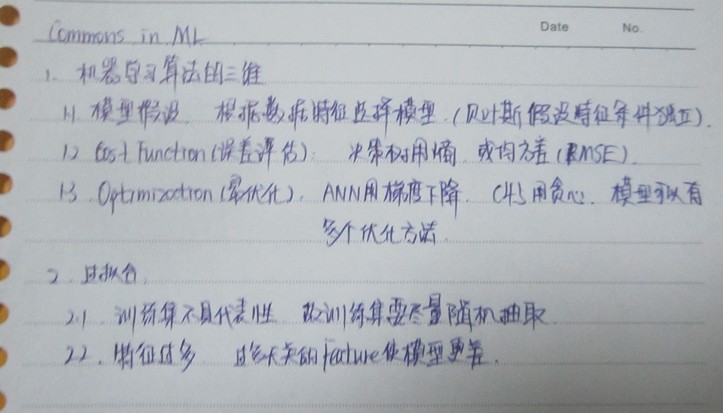 Date No.
Commons in ML
1. 机器学习算法的三维
1.1 模型假设 根据数据特征选择模型.(贝叶斯假设特征条件独立).
1.2 Cost Function(误差评估): 决策树用熵 或均方差(RMSE)
1.3 Optimization(最优化). ANN用梯度下降. C4.5用贪心. 模型可以有
多个优化方法.
2. 过拟合
2.1. 训练集不具代表性 故训练集要尽量随机抽取.
2.2. 特征过多 过多无关的feature使模型更差.